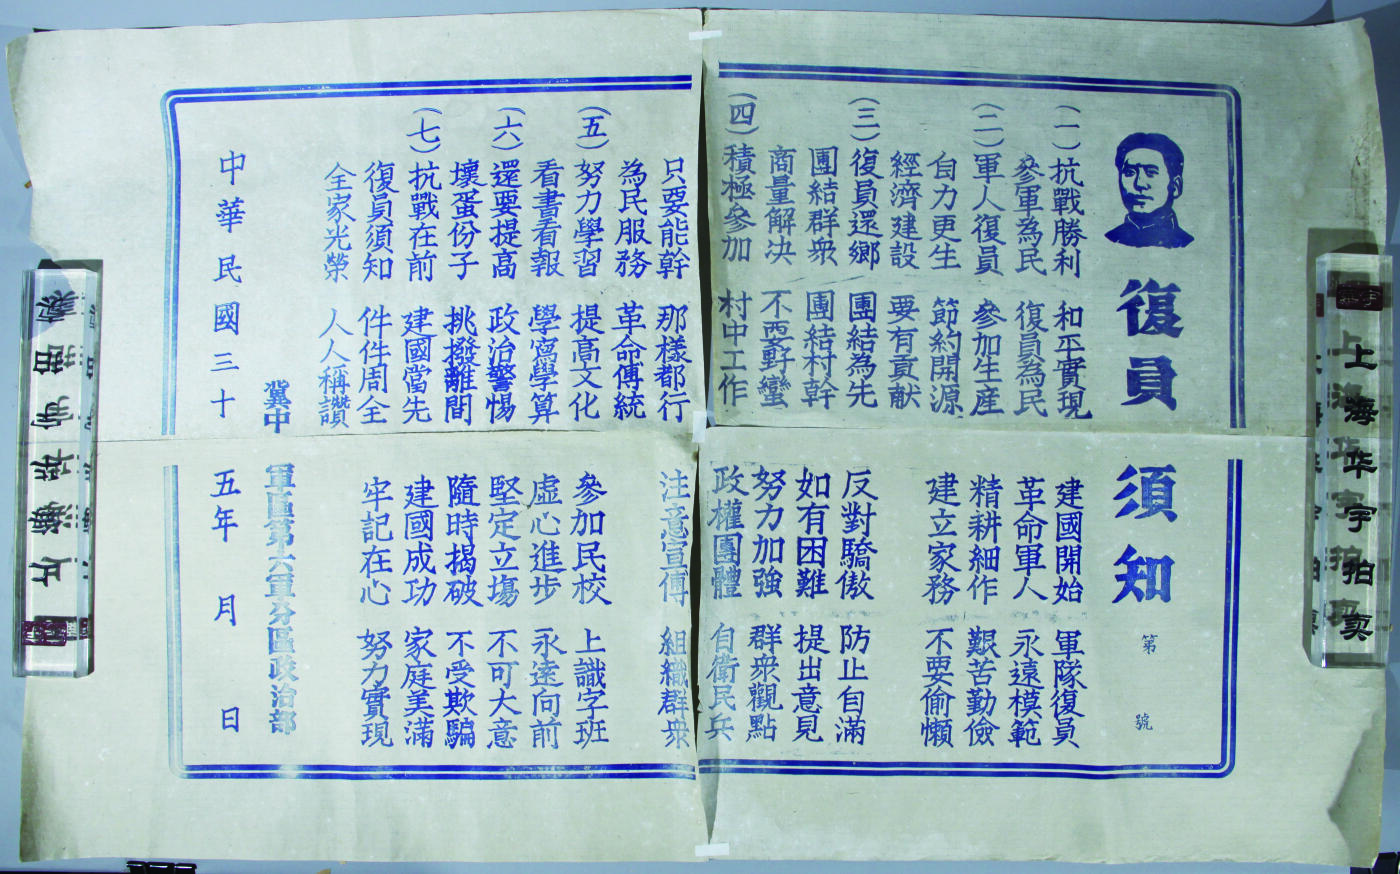 復員須知
第 號
(一)抗戰勝利 和平實現 建國開始 軍隊復員
參軍為民 復員為民 革命軍人 永遠模範
(二)軍人復員 參加生産 精耕細作 艱苦勤儉
自力更生 節約開源 建立家務 不要偷懶
經濟建設 要有貢献
(三)復員還鄉 團結為先 反對驕傲 防止自滿
團結群衆 團結村幹 如有困難 提出意見
商量解决 不要野蠻 努力加強 群衆觀點
(四)積極參加 村中工作 政權團體 自衛民兵
只要能幹 那樣都行 注意宣傳 組織群衆
為民服務 革命傳統
(五)努力學習 提高文化 參加民校 上識字班
看書看報 學寫學算 虛心進步 永遠向前
(六)還要提高 政治警惕 堅定立塲 不可大意
壞蛋份子 挑撥離間 隨時揭破 不受欺騙
(七)抗戰在前 建國當先 建國成功 家庭美滿
復員須知 件件周全 牢記在心 努力實現
全家光榮 人人稱讚
冀中軍區第六軍分區政治部
中華民國三十五年 月 日
上海华宇拍卖
上海华宇拍卖